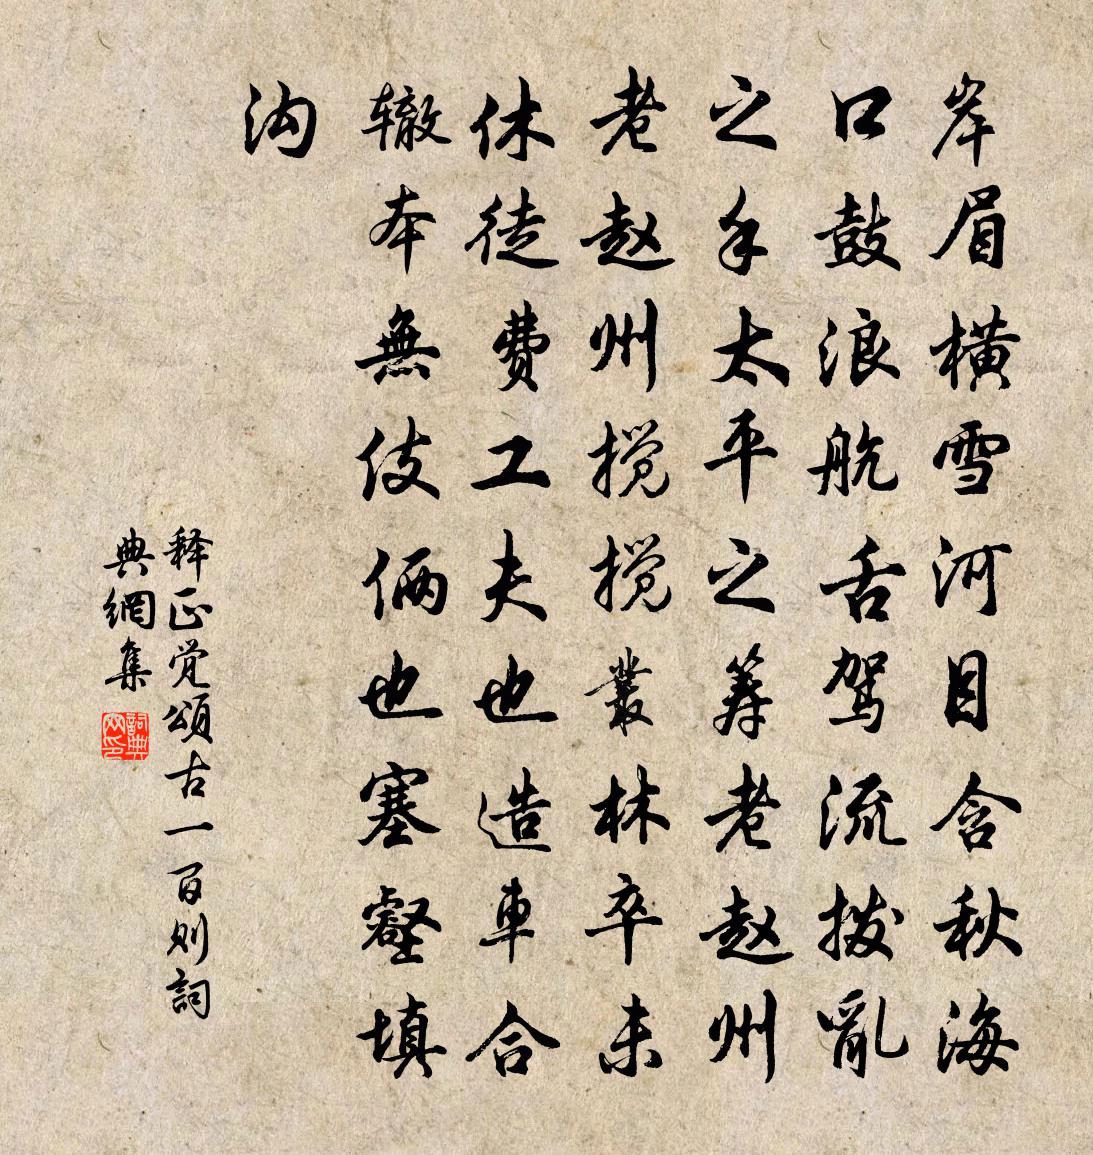 岸眉横雪河目含秋海
口鼓浪航舌驾流拨亂
之手太平之筹老赵州
老赵州搅搅叢林卒未
休徒费工夫也造車合
辙本無伎俩也塞壑填
沟
释正觉颂古一百则詞
典網集
詞典网印